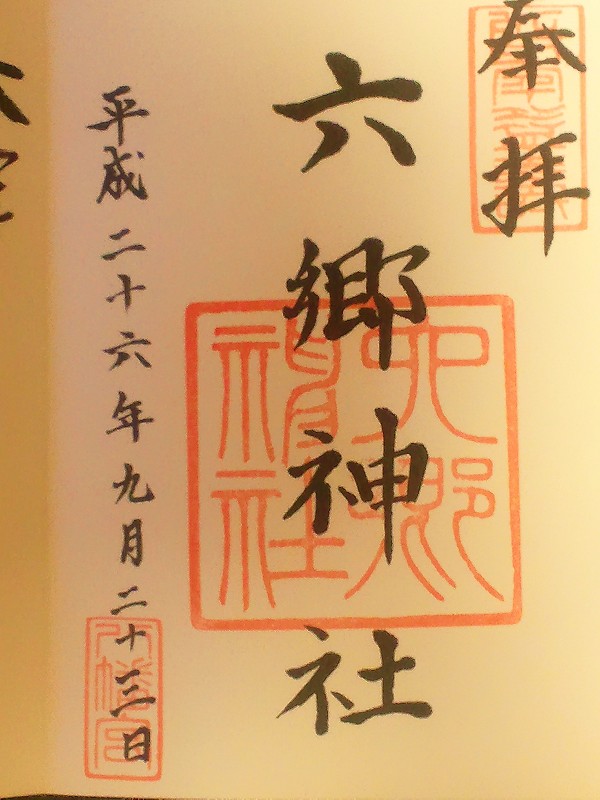 奉拝
六郷神社
平成二十六年九月二十三日
六郷神社
八幡宮